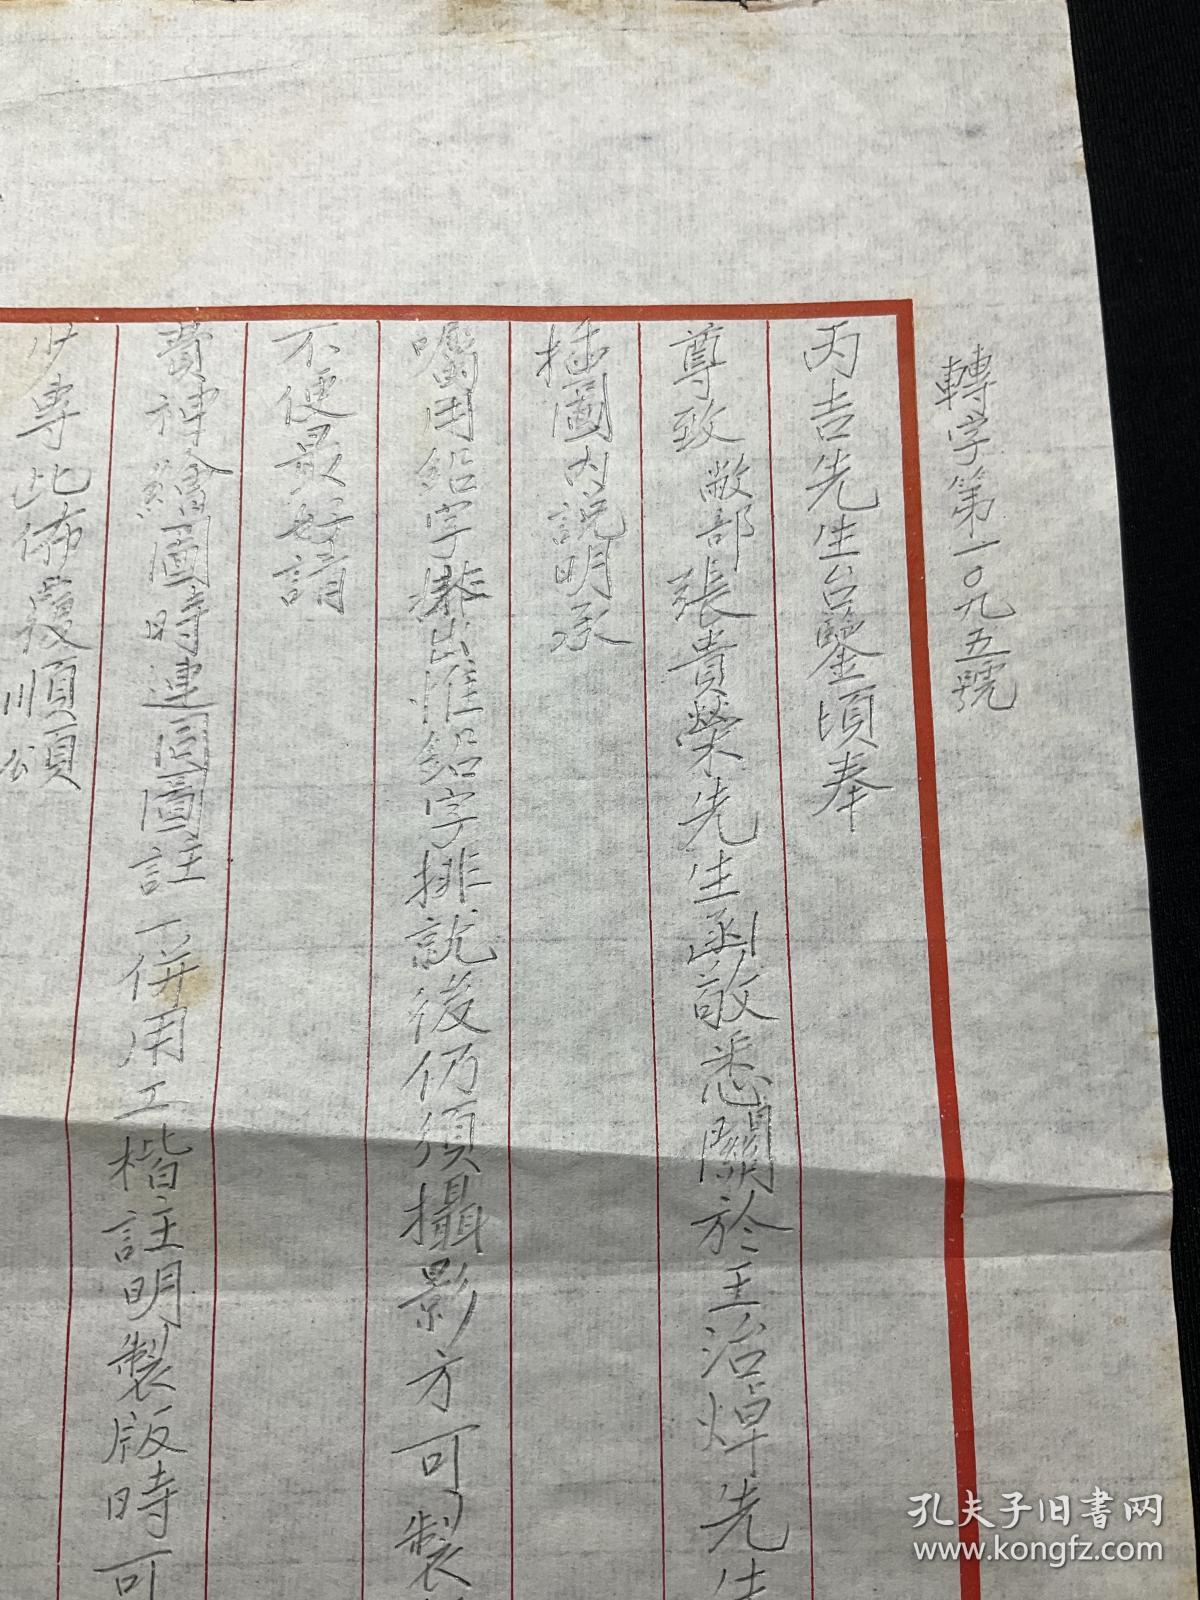 轉字第一〇九五號
丙吉先生台鑒頃奉
尊致敝部張貴榮先生函敬悉關於王治焯先生
插圖內說明承
囑用鉛字排出惟鉛字排就後仍須攝影方可製
不便最好請
費神繪圖時連同圖註一併用工楷註明製版時可
少專此佈覆順頌
孔夫子旧书网
www.kongfz.com